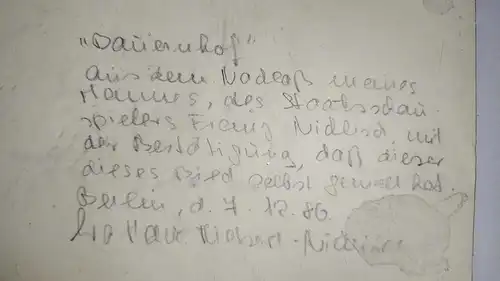 "Bauernhof"
aus dem Nachlaß meines
Mannes, des Staatsschau-
spielers Franz Nicklisch, mit
der Bestätigung, daß dieser
dieses Bild selbst gemalt hat.
Berlin, d. 7. 12. 86